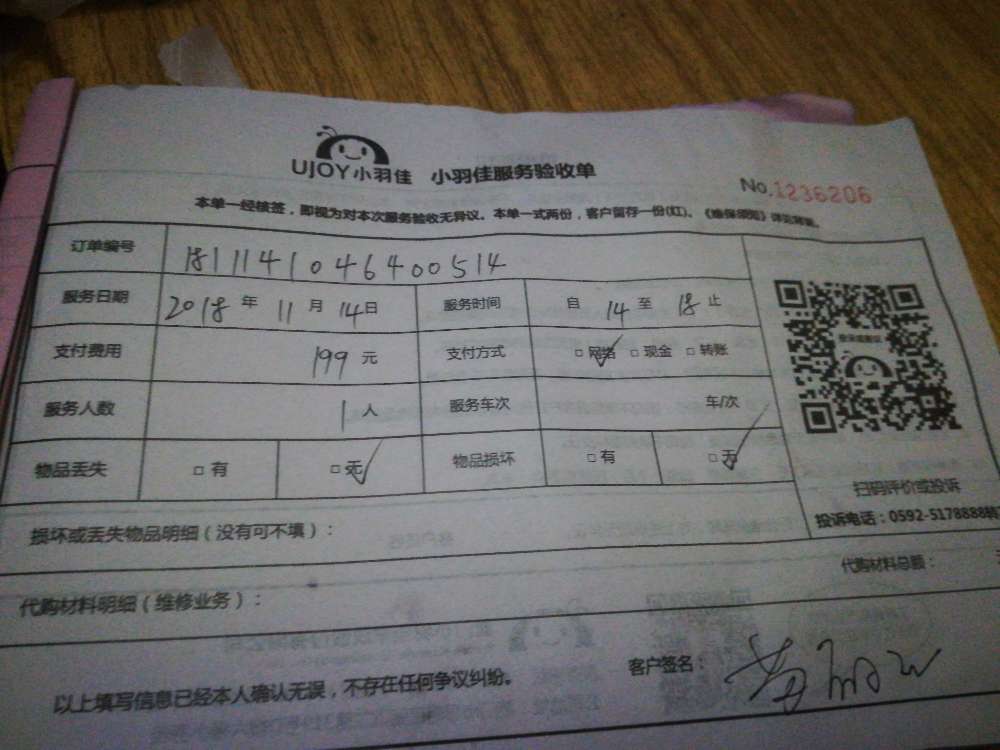 UJOY小羽佳 小羽佳服务验收单
No.1236206
本单一经核签，即视为对本次服务验收无异议。本单一式两份，客户留存一份(红)。《维保须知》详见背面。
订单编号 1811141046400514
服务日期 2018年 11月 14日 服务时间 自 14 至 18 止
支付费用 199 元 支付方式 □网络 □现金 □转账
服务人数 1人 服务车次 车/次
物品丢失 □有 □无 物品损坏 □有 □无
扫码评价或投诉
投诉电话：0592-5178888转
损坏或丢失物品明细（没有可不填）：
代购材料总额：
代购材料明细（维修业务）：
客户签名：
以上填写信息已经本人确认无误，不存在任何争议纠纷。